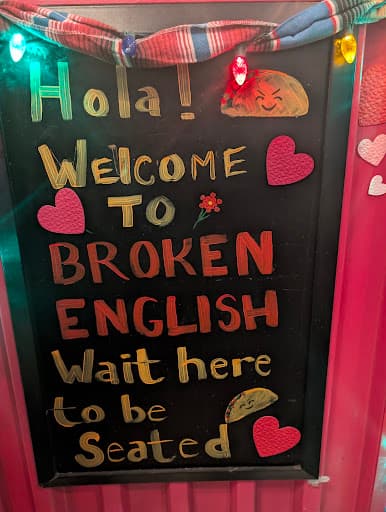 Hola!
WELCOME
TO
BROKEN
ENGLISH
Wait here
to be
Seated